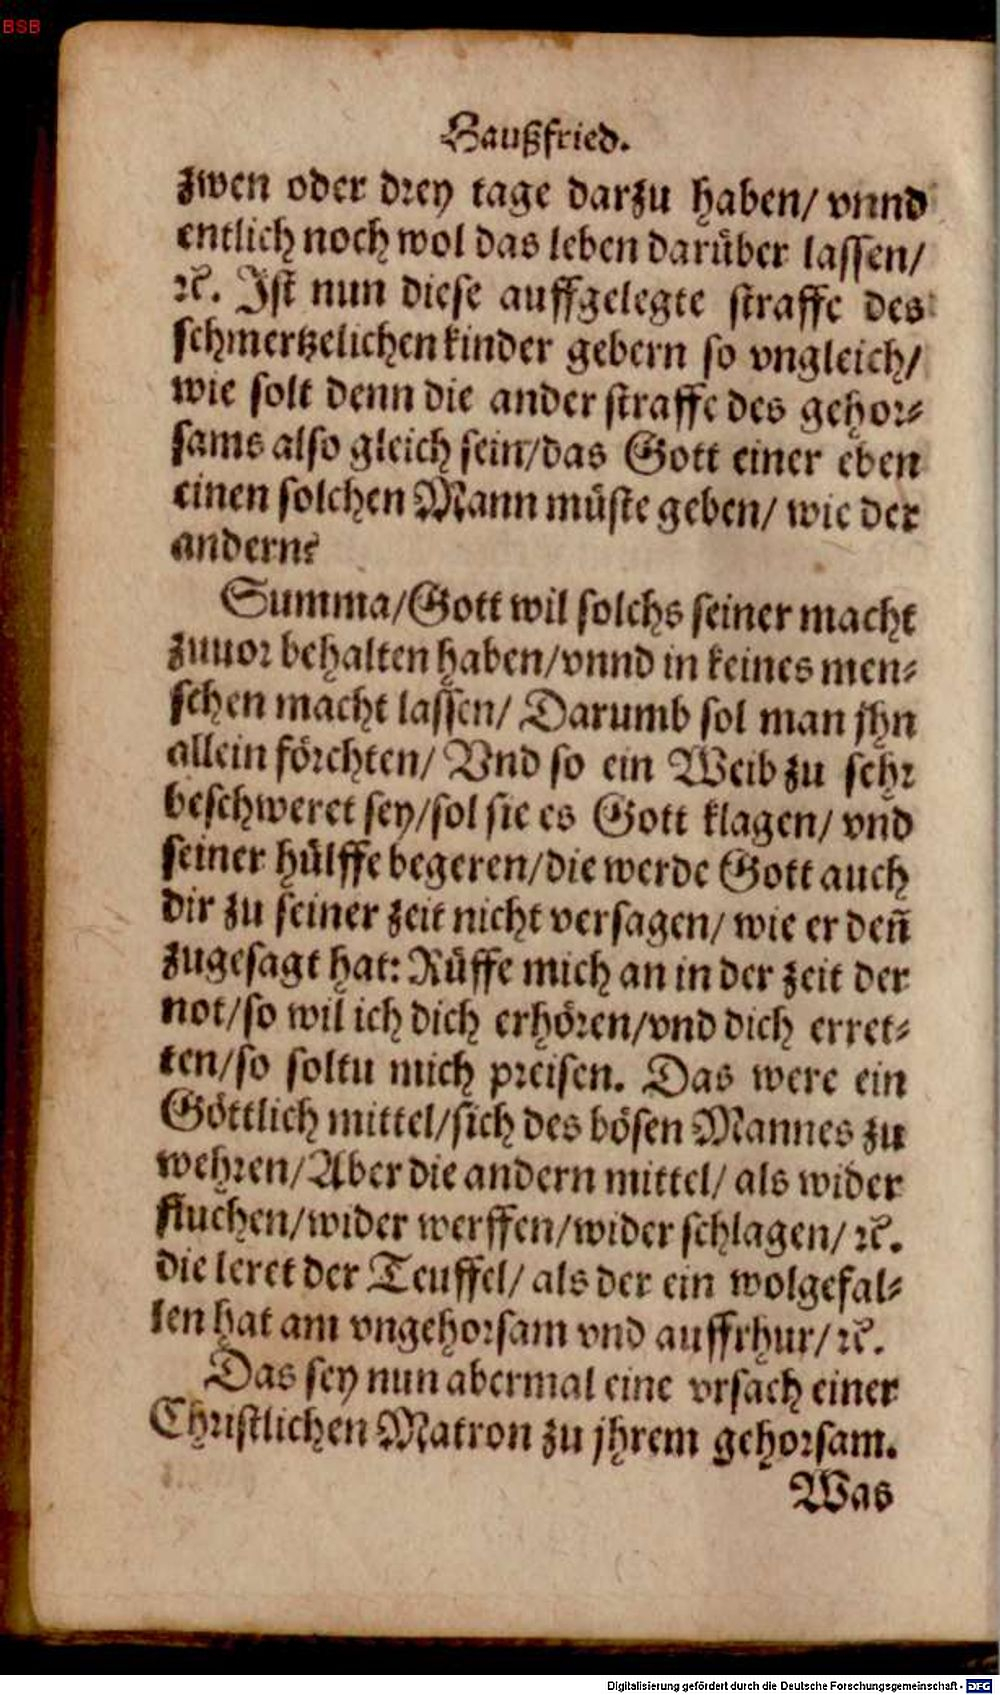 BSB
Haußfried.
zwen oder drey tage darzu haben/ vnnd
entlich noch wol das leben darüber lassen/
ꝛc. Ist nun diese auffgelegte straffe des
schmertzelichen kinder gebern so vngleich/
wie solt denn die ander straffe des gehor⸗
sams also gleich sein/das Gott einer eben
einen solchen Mann müste geben/ wie der
andern?
Summa/Gott wil solchs seiner macht
zuuor behalten haben/vnnd in keines men⸗
schen macht lassen/ Darumb sol man jhn
allein förchten/ Vnd so ein Weib zu sehr
beschweret sey/sol sie es Gott klagen/ vnd
seiner hülffe begeren/die werde Gott auch
dir zu seiner zeit nicht versagen/ wie er deñ
zugesagt hat: Rüffe mich an in der zeit der
not/so wil ich dich erhören/vnd dich erret⸗
ten/so soltu mich preisen. Das were ein
Göttlich mittel/sich des bösen Mannes zu
wehren/Aber die andern mittel/ als wider
fluchen/wider werffen/wider schlagen/ ꝛc.
die leret der Teuffel/ als der ein wolgefal⸗
len hat am vngehorsam vnd auffrhur/ ꝛc.
Das sey nun abermal eine vrsach einer
Christlichen Matron zu jhrem gehorsam.
Was
Digitalisierung gefördert durch die Deutsche Forschungsgemeinschaft - DFG